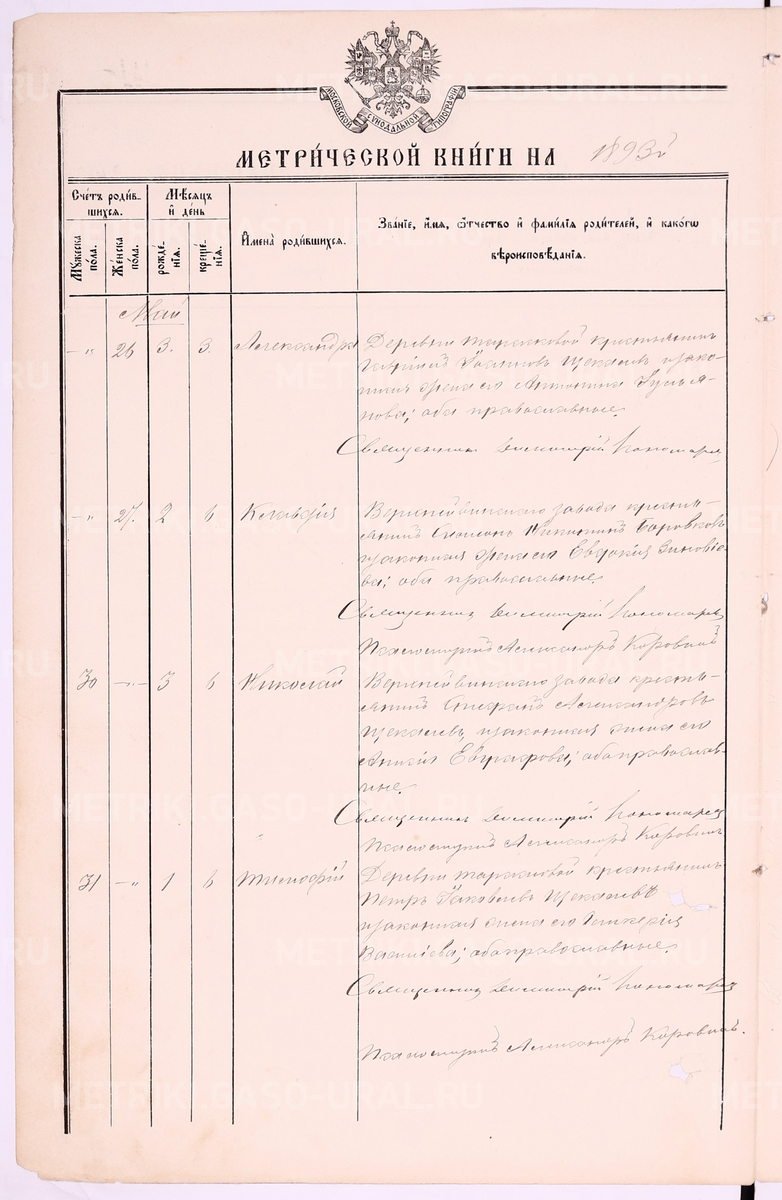 МОСКОВСКОЙ СѴНОДАЛЬНОЙ ТИПОГРАФІИ
МЕТРИ́ЧЕСКОЙ КНИ́ГИ НА 1893й
Сче́тъ роди́в-
шихся.
Мѣсяцъ
и де́нь
Му́жеска
по́ла.
Же́нска
по́ла.
рожде́-
нія.
креще́-
нія.
Имена̀ роди́вшихся.
Зва́ніе, и́мя, ѻ҆́тчество и фами́лія роди́телей, и како́гѡ
вѣроисповѣ́данія.
Май
-"- 26 3. 3. Александра Деревни Таракковой крестьянинъ
Іоанновъ Щекалевъ и зако-
нная жена его Антонина
нова; оба православные.
Священникъ Димитрій Пономаревъ
-"- 27. 2 6 Клавдія завода кресть-
янинъ Никитинъ Боровковъ
и законная жена его Евдокія Зиновіе-
ва; оба православные.
Священникъ Димитрій Пономаревъ
Псаломщикъ Александръ Коровинъ
30 -"- 3 6 Николай завода кресть-
янинъ Стефанъ Александровъ
Щекалевъ и законная жена его
Анисія Евграфова; оба православ-
ные.
Священникъ Димитрій Пономаревъ
Псаломщикъ Александръ Коровинъ
31 -"- 1 6 Тимофей Деревни крестьянинъ
Петръ Іаковлевъ Щекалевъ
и законная жена его Гликерія
Василіева; оба православные.
Священникъ Димитрій Пономаревъ
Псаломщикъ Александръ Коровинъ.
METRIKI.GASO-URAL.RU